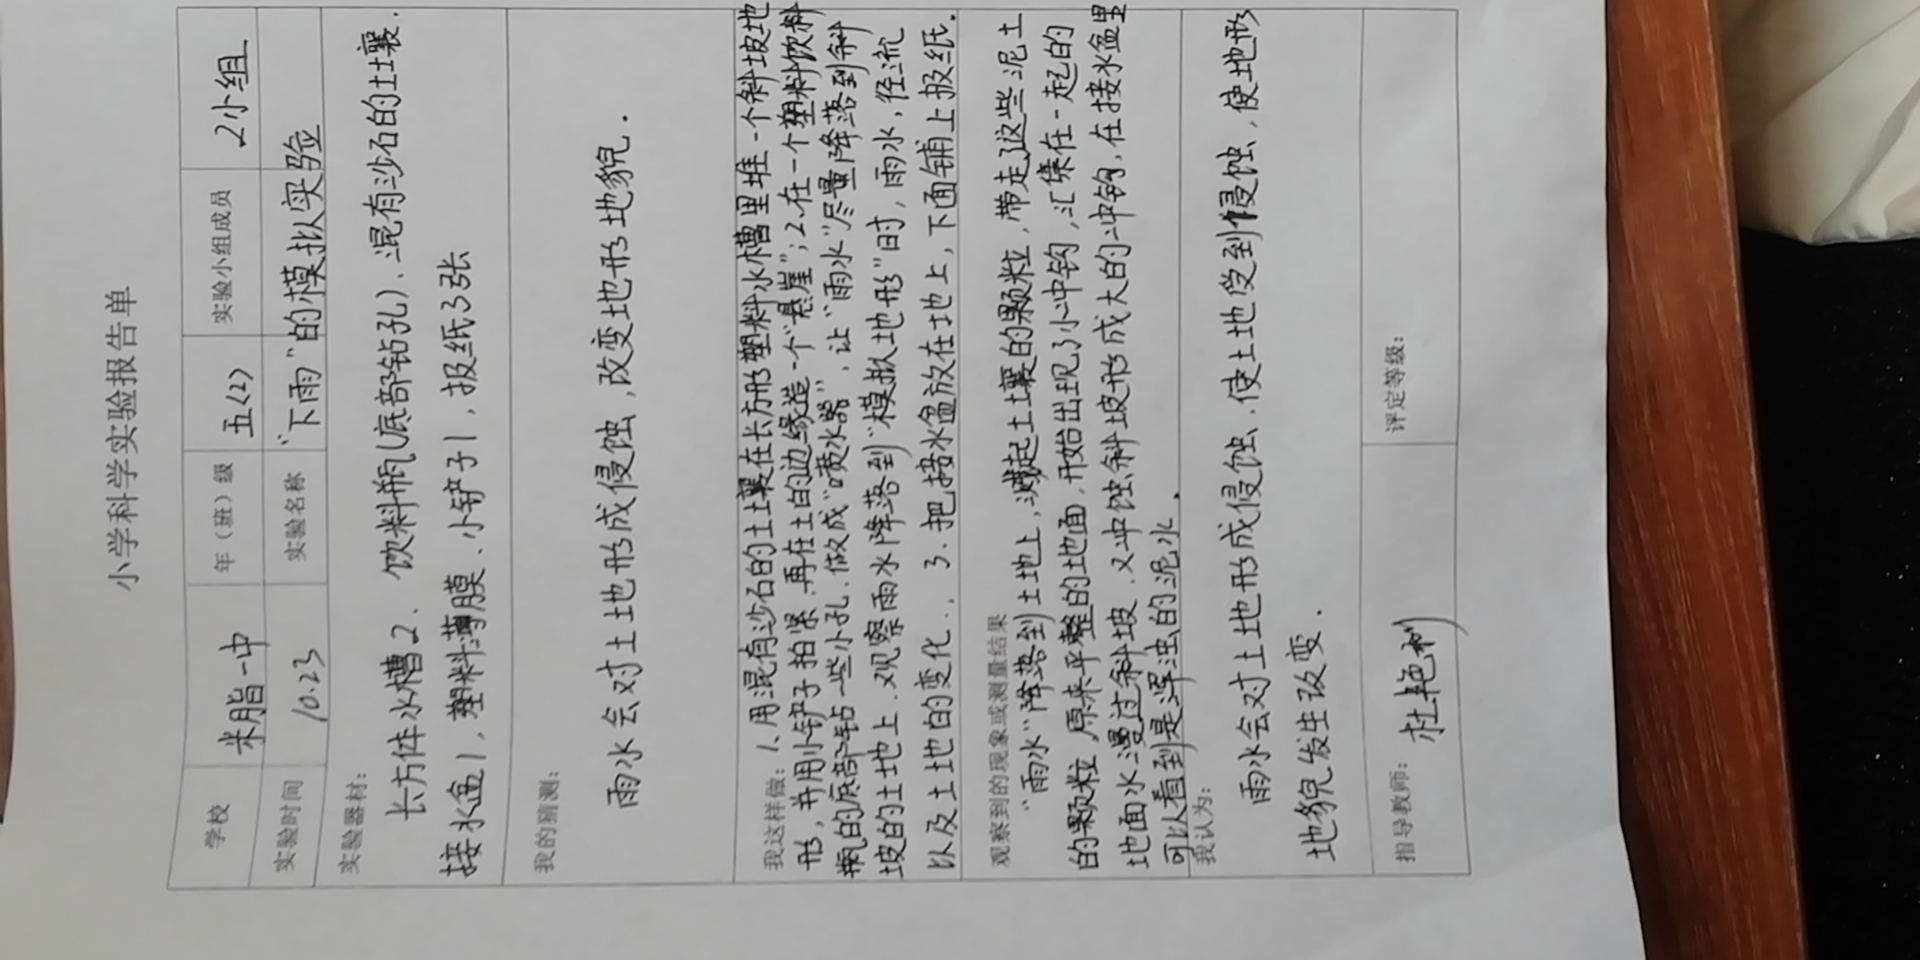 小学科学实验报告单
学校 米脂一中 年（班）级 五(2) 实验小组成员 2小组
实验时间 10.23 实验名称 "下雨"的模拟实验
实验器材：
长方体水槽2、饮料瓶(底部钻孔)、混有沙石的土壤.
接水盆1,塑料薄膜、小铲子1,报纙3张
我的猜测：
雨水会对土地形成侵蚀,改变地形地貌.
我这样做：1.用混有沙石的土壤在长方形塑料水槽里堆一个斜坡地
形,并用小铲子拍紧.再在土的边缘造一个"悬崖";2.在一个塑料饮料
瓶的底部钻一些小孔.做成"喷水器",让"雨水"尽量降落到斜
坡的土地上.观察雨水降落到"模拟地形"时,雨水,径流
以及土地的变化. 3.把接水盆放在地上,下面铺上报纸.
观察到的现象或测量结果
"雨水"降落到土地上,溅起土壤的颗粒,带走了这些泥土
的颗粒,原来平整的地面.开始出现了小冲钩,汇集在一起的
地面水漫过斜坡.又冲蚀斜坡形成大的冲钩,在接水盆里
可以看到是浑浊的泥水.
我认为：
雨水会对土地形成侵蚀、使土地受到侵蚀,使地形
地貌发生改变.
指导教师： 杜艳利 评定等级：